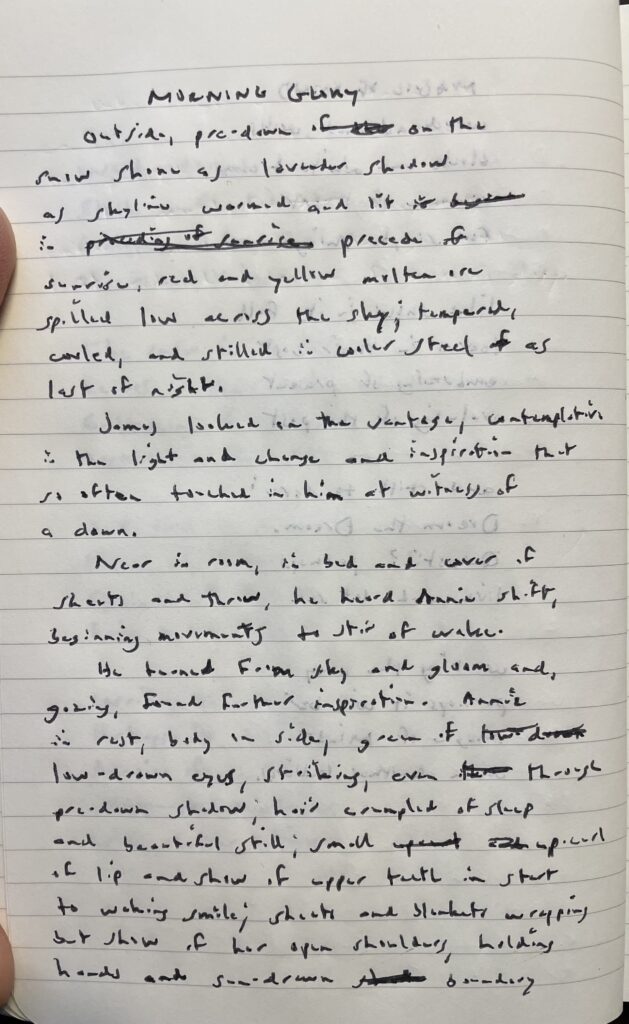 MORNING GLORY
Outside, pre-dawn of on the
snow shone as lavender shadow
as skyline warmed and lit
in preceding of sunrise precede of
sunrise, red and yellow molten ore
spilled low across the sky; tempered,
cooled, and stilled in cooler steel as
last of night.
James looked on the vantage, contemplative
in the light and change and inspiration that
so often touched in him at witness of
a dawn.
Near in room, in bed and cover of
sheets and throw, he heard Annie shift,
beginning movements to stir of wake.
He turned from sky and gloom and,
gazing, found further inspiration. Annie
in rest, body on side, green of
low-drawn eyes, striking, even through
pre-dawn shadow; hair crumpled of sleep
and beautiful still; small upcurl
of lip and show of upper teeth in start
to waking smile; sheets and blankets wrapping
but show of her open shoulders, holding
hands and sun-drawn boundary